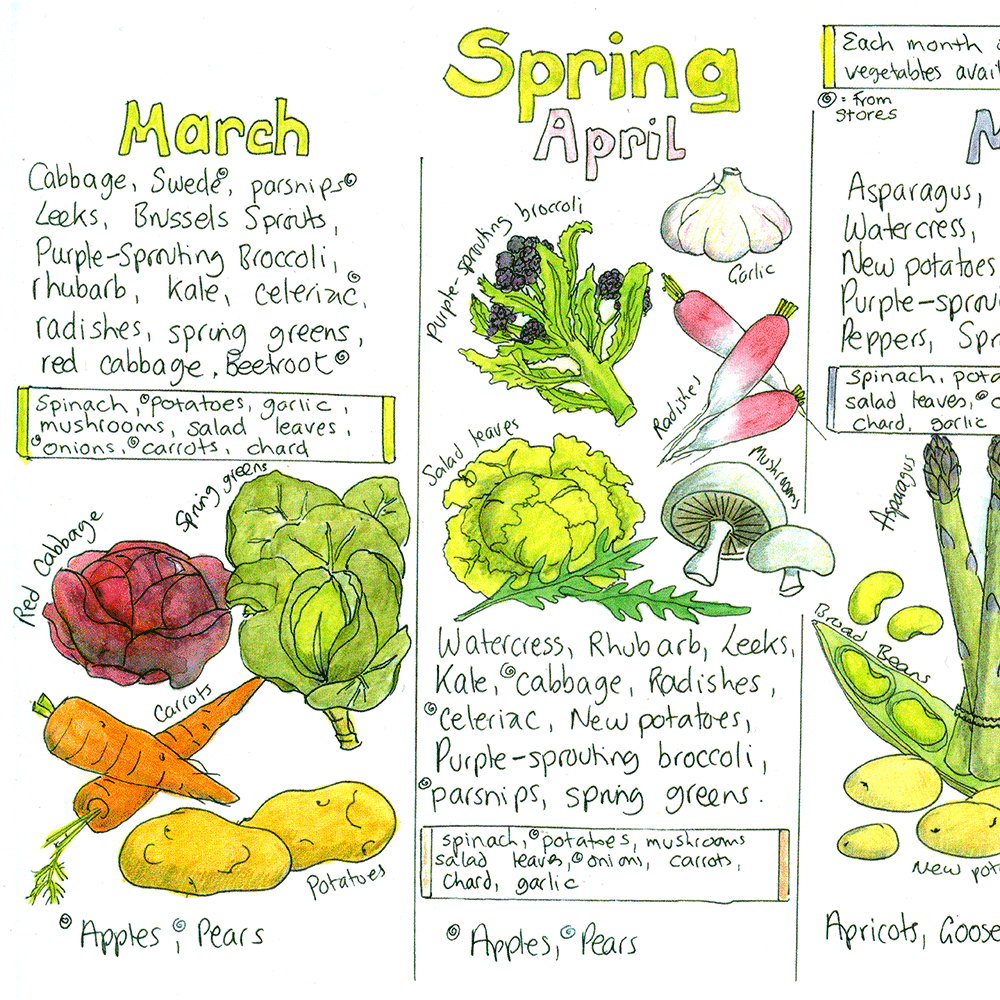 Spring
March
Cabbage, Swede, parsnips
Leeks, Brussels Sprouts,
Purple-Sprouting Broccoli,
rhubarb, kale, celeriac,
radishes, spring greens,
red cabbage, Beetroot
Spinach, potatoes, garlic,
mushrooms, salad leaves,
onions, carrots, chard
Spring greens
Red Cabbage
Carrots
Potatoes
Apples, Pears
April
Purple-sprouting broccoli
Garlic
Radishes
Salad leaves
Mushrooms
Watercress, Rhubarb, Leeks,
Kale, cabbage, Radishes,
celeriac, New potatoes,
Purple-sprouting broccoli,
parsnips, spring greens.
spinach, potatoes, mushrooms
salad leaves, onions, carrots,
Chard, garlic
Apples, Pears
Each month
vegetables avai
= From
Stores
M
Asparagus,
Watercress,
New potatoes
Purple-sprou
Peppers, Spr
Spinach, pota
salad leaves,
chard, garlic
Asparagus
Broad
Beans
New pot
Apricots, Goose